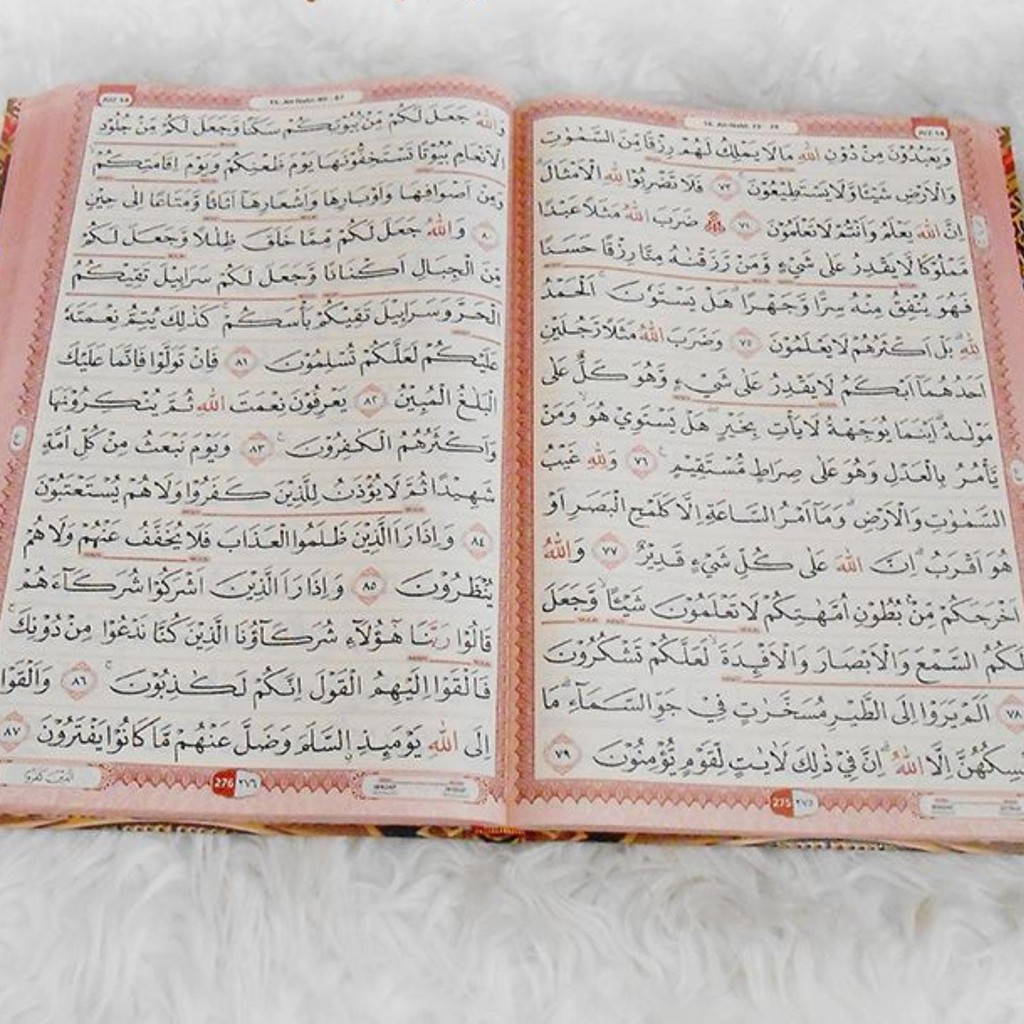 JUZ 14
16. An-Nahl: 73 - 79
وَيَعْبُدُوْنَ مِنْ دُوْنِ اللّٰهِ مَا لَا يَمْلِكُ لَهُمْ رِزْقًا مِّنَ السَّمٰوٰتِ
وَالْاَرْضِ شَيْـًٔا وَّلَا يَسْتَطِيْعُوْنَ ۚ ٧٣ فَلَا تَضْرِبُوْا لِلّٰهِ الْاَمْثَالَ ۗ
اِنَّ اللّٰهَ يَعْلَمُ وَاَنْتُمْ لَا تَعْلَمُوْنَ ٧٤ ضَرَبَ اللّٰهُ مَثَلًا عَبْدًا
مَّمْلُوْكًا لَّا يَقْدِرُ عَلٰى شَيْءٍ وَّمَنْ رَّزَقْنٰهُ مِنَّا رِزْقًا حَسَنًا
فَهُوَ يُنْفِقُ مِنْهُ سِرًّا وَّجَهْرًا ۗ هَلْ يَسْتَوٗنَ ۚ اَلْحَمْدُ
لِلّٰهِ ۗ بَلْ اَكْثَرُهُمْ لَا يَعْلَمُوْنَ ٧٥ وَضَرَبَ اللّٰهُ مَثَلًا رَّجُلَيْنِ
اَحَدُهُمَآ اَبْكَمُ لَا يَقْدِرُ عَلٰى شَيْءٍ وَّهُوَ كَلٌّ عَلٰى
مَوْلٰىهُ ۗ اَيْنَمَا يُوَجِّهْهُّ لَا يَأْتِ بِخَيْرٍ ۖ هَلْ يَسْتَوِيْ هُوَ ۙ وَمَنْ
يَّأْمُرُ بِالْعَدْلِ وَهُوَ عَلٰى صِرَاطٍ مُّسْتَقِيْمٍ ۚ ٧٦ وَلِلّٰهِ غَيْبُ
السَّمٰوٰتِ وَالْاَرْضِ ۗ وَمَآ اَمْرُ السَّاعَةِ اِلَّا كَلَمْحِ الْبَصَرِ اَوْ
هُوَ اَقْرَبُ ۗ اِنَّ اللّٰهَ عَلٰى كُلِّ شَيْءٍ قَدِيْرٌ ٧٧ وَاللّٰهُ
اَخْرَجَكُمْ مِّنْۢ بُطُوْنِ اُمَّهٰتِكُمْ لَا تَعْلَمُوْنَ شَيْـًٔا ۙ وَّجَعَلَ
لَكُمُ السَّمْعَ وَالْاَبْصَارَ وَالْاَفْـِٕدَةَ ۙ لَعَلَّكُمْ تَشْكُرُوْنَ
٧٨ اَلَمْ يَرَوْا اِلَى الطَّيْرِ مُسَخَّرٰتٍ فِيْ جَوِّ السَّمَاۤءِ ۗ مَا
يُمْسِكُهُنَّ اِلَّا اللّٰهُ ۗ اِنَّ فِيْ ذٰلِكَ لَاٰيٰتٍ لِّقَوْمٍ يُّؤْمِنُوْنَ ٧٩
275 ٢٧٥
JUZ 14
16. An-Nahl: 80 - 87
وَاللّٰهُ جَعَلَ لَكُمْ مِّنْۢ بُيُوْتِكُمْ سَكَنًا وَّجَعَلَ لَكُمْ مِّنْ جُلُوْدِ
الْاَنْعَامِ بُيُوْتًا تَسْتَخِفُّوْنَهَا يَوْمَ ظَعْنِكُمْ وَيَوْمَ اِقَامَتِكُمْ ۙ
وَمِنْ اَصْوَافِهَا وَاَوْبَارِهَا وَاَشْعَارِهَآ اَثَاثًا وَّمَتَاعًا اِلٰى حِيْنٍ
٨٠ وَاللّٰهُ جَعَلَ لَكُمْ مِّمَّا خَلَقَ ظِلٰلًا وَّجَعَلَ لَكُمْ
مِّنَ الْجِبَالِ اَكْنَانًا وَّجَعَلَ لَكُمْ سَرَابِيْلَ تَقِيْكُمُ
الْحَرَّ وَسَرَابِيْلَ تَقِيْكُمْ بَأْسَكُمْ ۚ كَذٰلِكَ يُتِمُّ نِعْمَتَهٗ
عَلَيْكُمْ لَعَلَّكُمْ تُسْلِمُوْنَ ٨١ فَاِنْ تَوَلَّوْا فَاِنَّمَا عَلَيْكَ
الْبَلٰغُ الْمُبِيْنُ ٨٢ يَعْرِفُوْنَ نِعْمَتَ اللّٰهِ ثُمَّ يُنْكِرُوْنَهَا
وَاَكْثَرُهُمُ الْكٰفِرُوْنَ ۚ ٨٣ وَيَوْمَ نَبْعَثُ مِنْ كُلِّ اُمَّةٍ
شَهِيْدًا ثُمَّ لَا يُؤْذَنُ لِلَّذِيْنَ كَفَرُوْا وَلَا هُمْ يُسْتَعْتَبُوْنَ
٨٤ وَاِذَا رَاَ الَّذِيْنَ ظَلَمُوا الْعَذَابَ فَلَا يُخَفَّفُ عَنْهُمْ وَلَا هُمْ
يُنْظَرُوْنَ ٨٥ وَاِذَا رَاَ الَّذِيْنَ اَشْرَكُوْا شُرَكَاۤءَهُمْ
قَالُوْا رَبَّنَا هٰٓؤُلَاۤءِ شُرَكَاۤؤُنَا الَّذِيْنَ كُنَّا نَدْعُوْا مِنْ دُوْنِكَ ۚ
فَاَلْقَوْا اِلَيْهِمُ الْقَوْلَ اِنَّكُمْ لَكٰذِبُوْنَ ۚ ٨٦ وَاَلْقَوْا
اِلَى اللّٰهِ يَوْمَىِٕذِ ِۨالسَّلَمَ وَضَلَّ عَنْهُمْ مَّا كَانُوْا يَفْتَرُوْنَ ٨٧
276 ٢٧٦